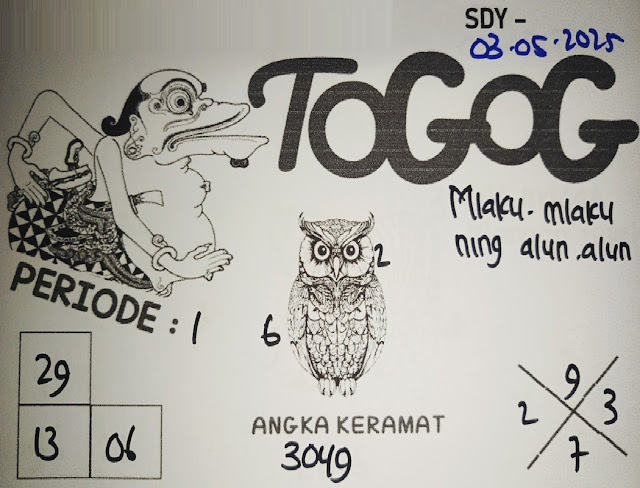 SDY -
03.05.2025
TOGOG
Mlaku. mlaku
ning alun.alun
PERIODE : 1
2
6
29
13 06
ANGKA KERAMAT
3049
9
2 3
7